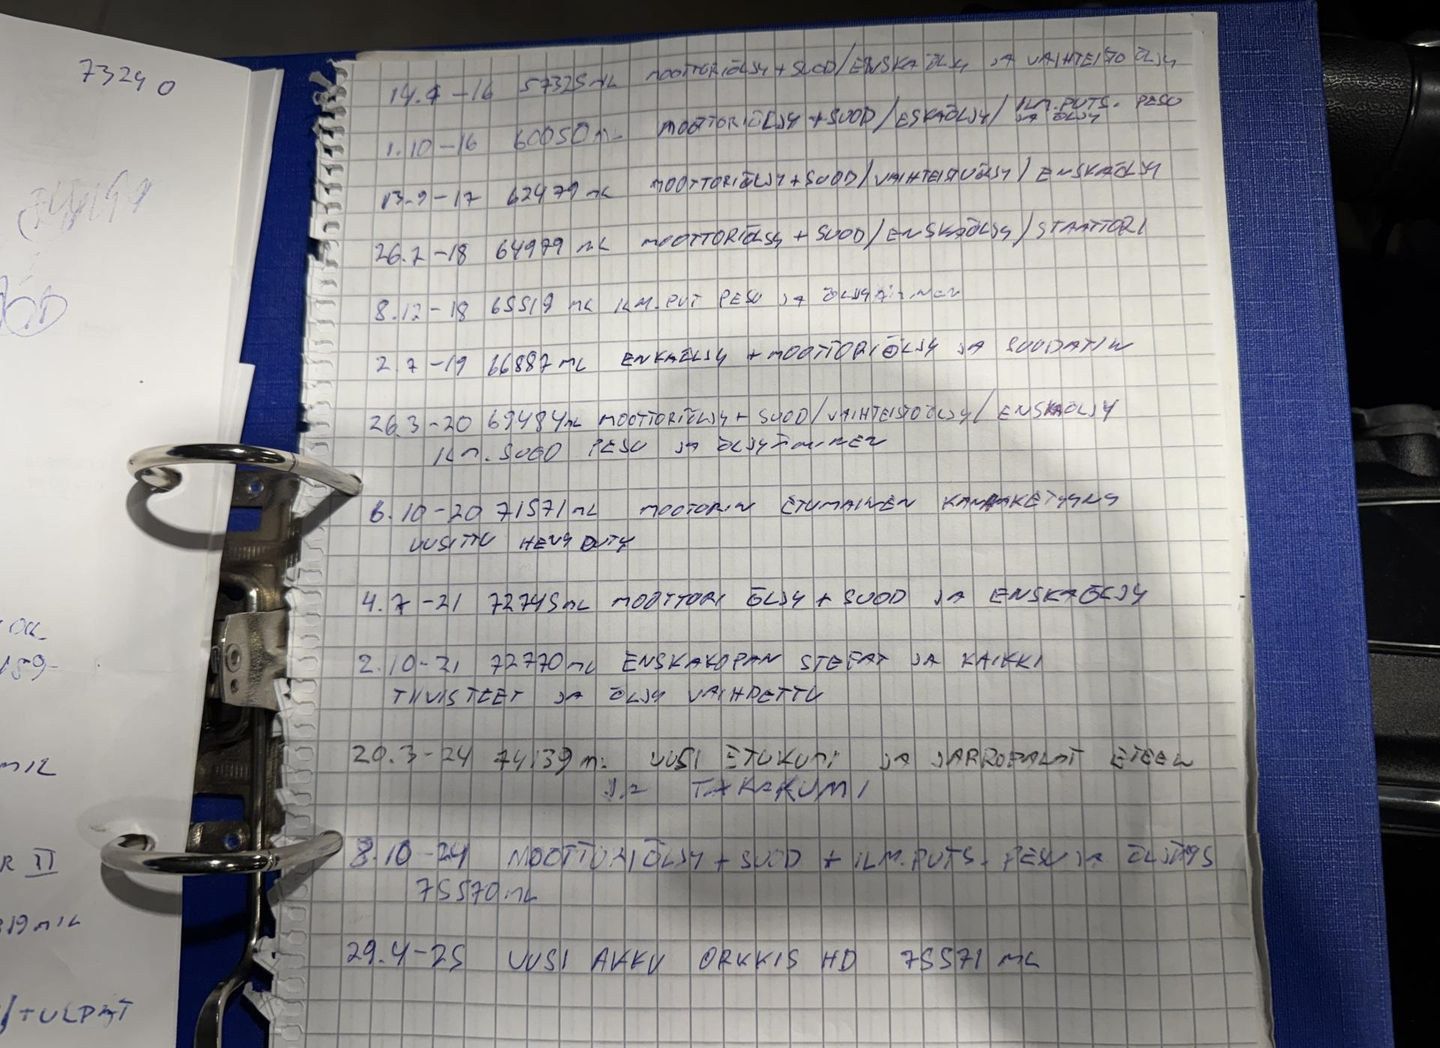 73240
14.4-16 57325ML MOOTTORIÖLJY + SUOD/ENSKAÖLJY JA VAIHTEISTOÖLJY
1.10-16 60050ML MOOTTORIÖLJY + SUOD/ESKAÖLJY/ILM.PUTS. PESU
JA ÖLJY
13.9-17 62479ML MOOTTORIÖLJY + SUOD/VAIHTEISTOÖLJY/ENSKAÖLJY
26.7-18 64979ML MOOTTORIÖLJY + SUOD/ENSKAÖLJY/STARTTORI
8.12-18 65519ML ILM.PUT PESU JA
2.7-19 66887ML ENKAÖLJY + MOOTTORIÖLJY JA SUODATIN
26.3-20 69484ML MOOTTORIÖLJY + SUOD/VAIHTEISTOÖLJY/ENSKAÖLJY
ILM.SUOD PESU JA ÖLJYÄMINEN
6.10-20 71571ML MOOTORIN ETUMAINEN
UUSITTU HEVY DUTY
4.7-21 72745ML MOOTTORI ÖLJY + SUOD JA ENSKAÖLJY
2.10-21 72770ML ENSKAKOPAN STEFAT JA KAIKKI
TIIVISTEET JA ÖLJY VAIHDETTU
20.3-24 74139M. UUSI ETUKUMI JA JARRUPALAT ETEEN
JA TAKAKUMI
8.10-24 MOOTTORIÖLJY + SUOD + ILM.PUTS. PESU JA ÖLJÄYS
75570ML
29.4-25 UUSI AKKU ORKKIS HD 75571ML
OK
159-
MIL
R II
819 MIL
/TULPAT